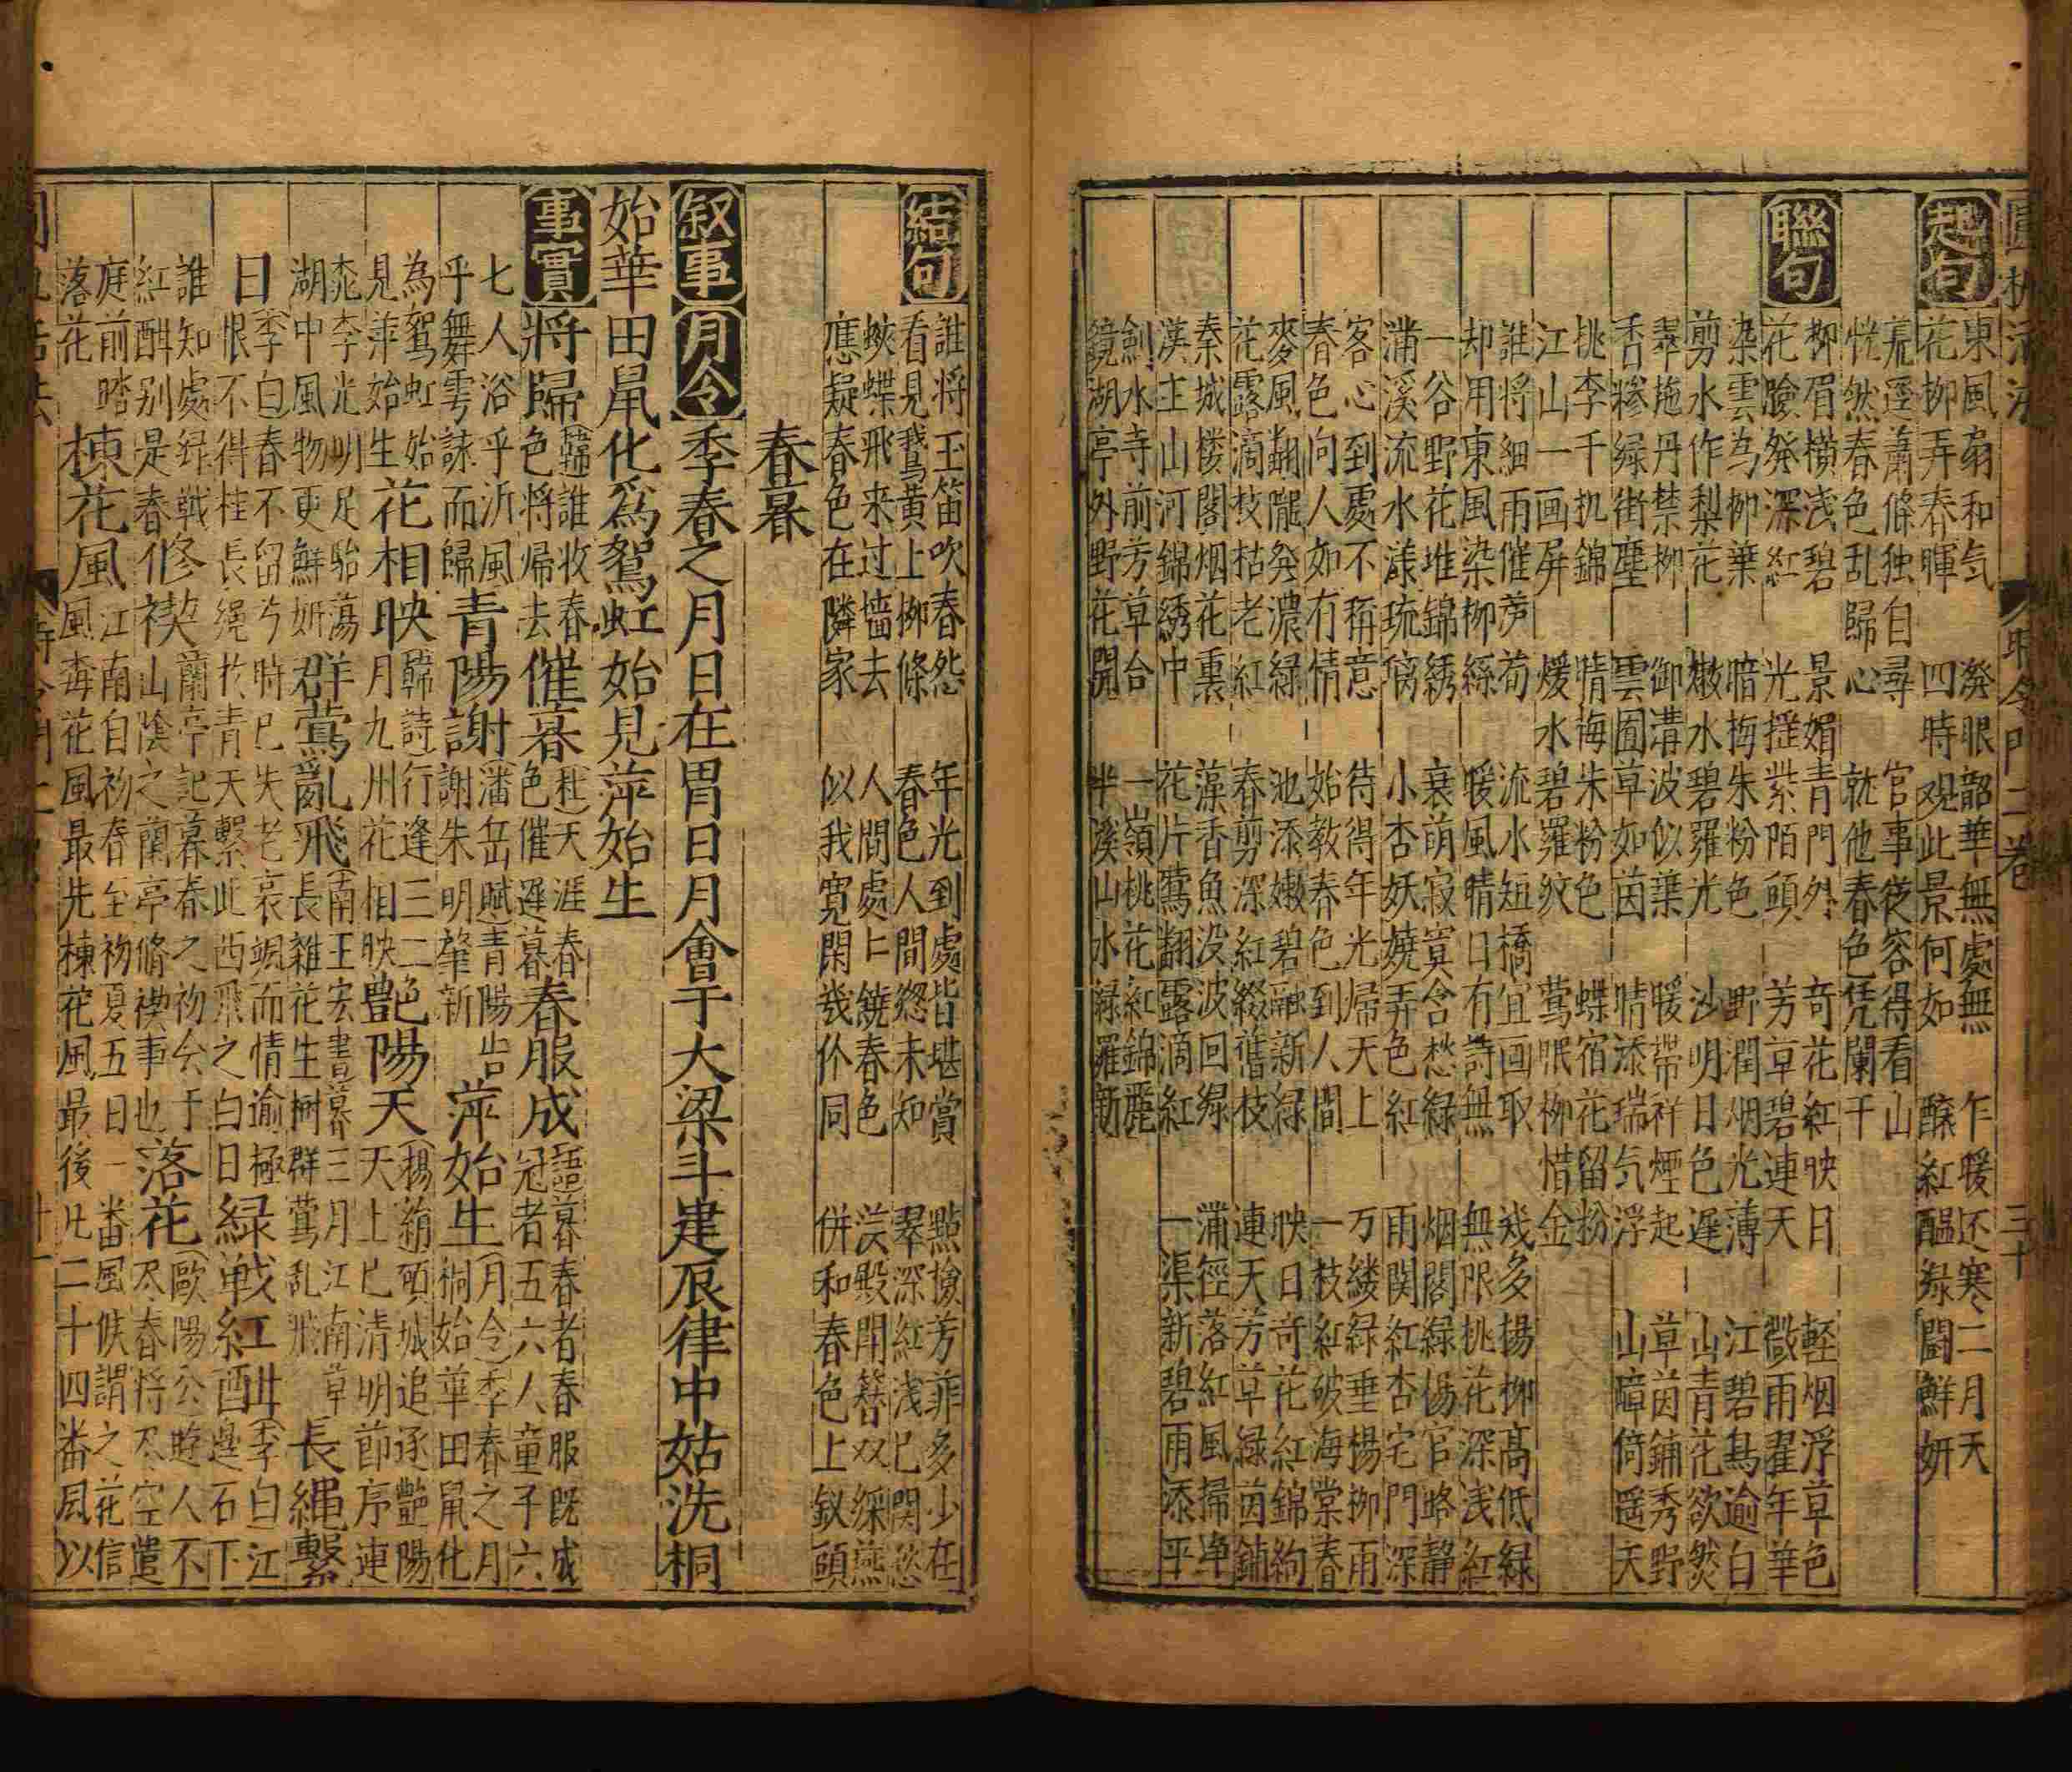 起句
東風扇和气 發眼韶華無處無 乍暖还寒二月天
花柳弄春暉 四時观此景何如 醸紅醖緑鬪鮮妍
蕭條独自尋 官事從容得看山
恍然春色乱歸心 就他春色凭闌干
聯句
柳眉横浅碧 景媚青門外 奇花紅映日 軽烟浮草色
花臉発深紅 光揺紫陌頭 芳草碧連天 微雨濯年華
染雲为柳葉 暗梅朱粉色 野潤烟光薄 江碧鳥逾白
剪水作梨花 嫩水碧羅光 沙明日色遲 山青花欲然
翠拖丹禁柳 御溝波似葉 暖帶祥煙起 草茵鋪秀野
香糝緑街塵 雲園草如茵 晴添瑞气浮 山障倚遥天
桃李千机錦 晴梅朱粉色 蝶宿花留粉
江山一画屏 煖水碧羅紋 莺眠柳惜金
誰將細雨催芦荀 流水短橋宜画取 幾多揚柳高低緑
却用東風染柳絲 暖風晴日有詩無 無限桃花深浅紅
一谷野花堆錦綉 衰萌寂寞含愁緑 烟閣緑楊官路静
蒲溪流水漾琉璃 小杏妖嬈弄色紅 雨関紅杏宅門深
客心到處不称意 待得年光帰天上 万縷緑垂楊柳雨
春色向人如有情 始教春色到人間 一枝紅破海棠春
麥風翻隴発濃緑 池添嫩碧融新緑 映日奇花紅錦絢
花露滴枝枯老紅 春剪深紅綴舊枝 連天芳草緑茵鋪
秦城楼閣烟花裏 藻香魚没波回緑 蒲徑落紅風掃净
漢主山河錦綉中 花片鶯翻露滴紅 一渠新碧雨添平
劍水寺前芳草合 一嶺桃花紅錦麗
鏡湖亭外野花開 半溪山水緑羅新
結句
誰將玉笛吹春怨 年光到處皆堪賞 點檢芳菲多少在
看見鵞黄上柳條 春色人間緫未知 翠深紅浅已関愁
蛺蝶飛来过墙去 人間處上饒春色 㳺殿開簪双綵燕
應疑春色在隣家 似我寛閑幾仆同 併和春色上釵頭
春暮
叙事 月令 季春之月日在胃日月會于大梁斗建辰律中姑洗桐
始華田鼠化爲鴽虹始見萍始生
事實 將歸 韓誰收春色將帰去 催暮 杜天涯春色催遲暮 春服成 語暮春者春服既成冠者五六人童子六
七人浴乎沂風乎舞雩詠而歸 青陽謝 潘岳賦青陽告謝朱明肇新 萍始生 月令季春之月桐始華田鼠化
為鴽虹始見萍始生 花相映 韓詩行逢三二月九州花相映 艷陽天 楊綃頭城追逐艷陽天上巳清明節序連
桃李光明足駘蕩湖中風物更鮮妍 群鶯亂飛 南王宏書暮三月江南草長雜花生樹群鶯乱飛 長繩繫
日 李白春不留兮時已失老衰颯而情逾極恨不得桂長繩於青天繫此西飛之白日 緑戦紅酣 李白江邊石下
誰知處緑戦紅酣别是春 修禊 蘭亭記暮春之初会于山陰之蘭亭脩禊事也 落花 歐陽公遊人不尽春將尽空遣
庭前踏落花 楝花風 江南自初春至初夏五日一畨風候謂之花信風每花風最先楝花風最後凡二十四畨風以